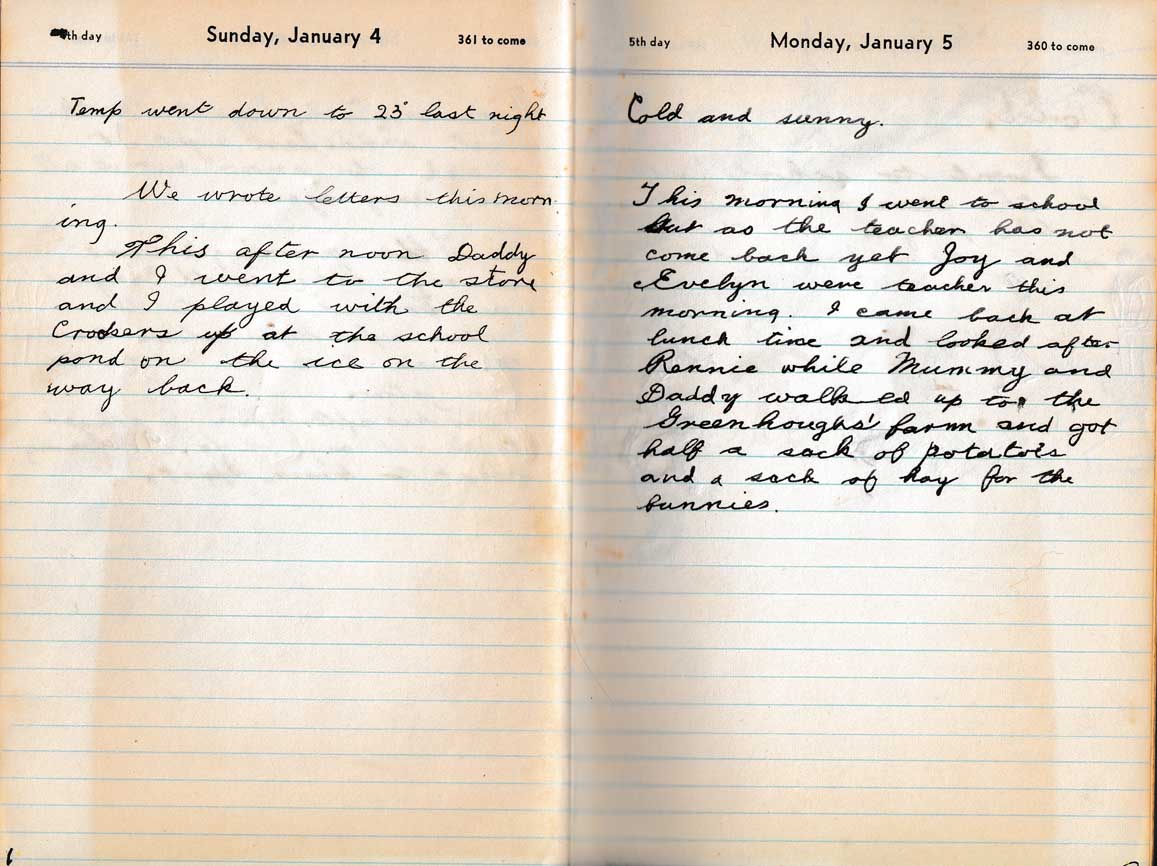 4th day Sunday, January 4 361 to come
Temp went down to 23° last night
We wrote letters this morn
ing.
This after noon Daddy
and I went to the store
and I played with the
Crockers up at the school
pond on the ice on the
way back.
5th day Monday, January 5 360 to come
Cold and sunny.
This morning I went to school
but as the teacher has not
come back yet Joy and
Evelyn were teacher this
morning. I came back at
lunch time and looked after
Rennie while Mummy and
Daddy walked up to the
Greenhoughs' farm and got
half a sack of potatois
and a sack of hay for the
bunnies.